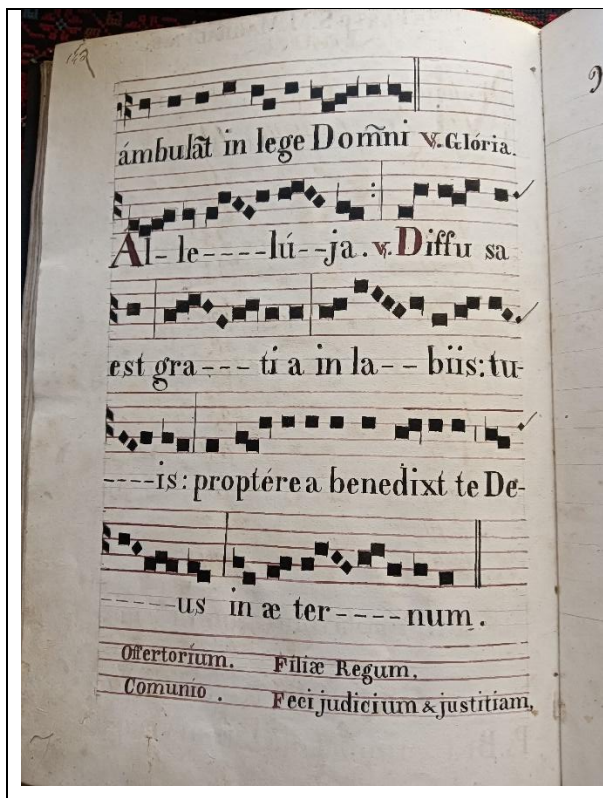 142
ámbulat̃ in lege Dom̃ni ℣. Glória.
Al-le----lú--ja. ℣. Diffu sa
est gra--- ti a in la-- biis: tu-
----is: proptérea benedixt te De-
-----us in æ ter----num.
Offertorium. Filiæ Regum.
Comunio. Feci judicium & justitiam,